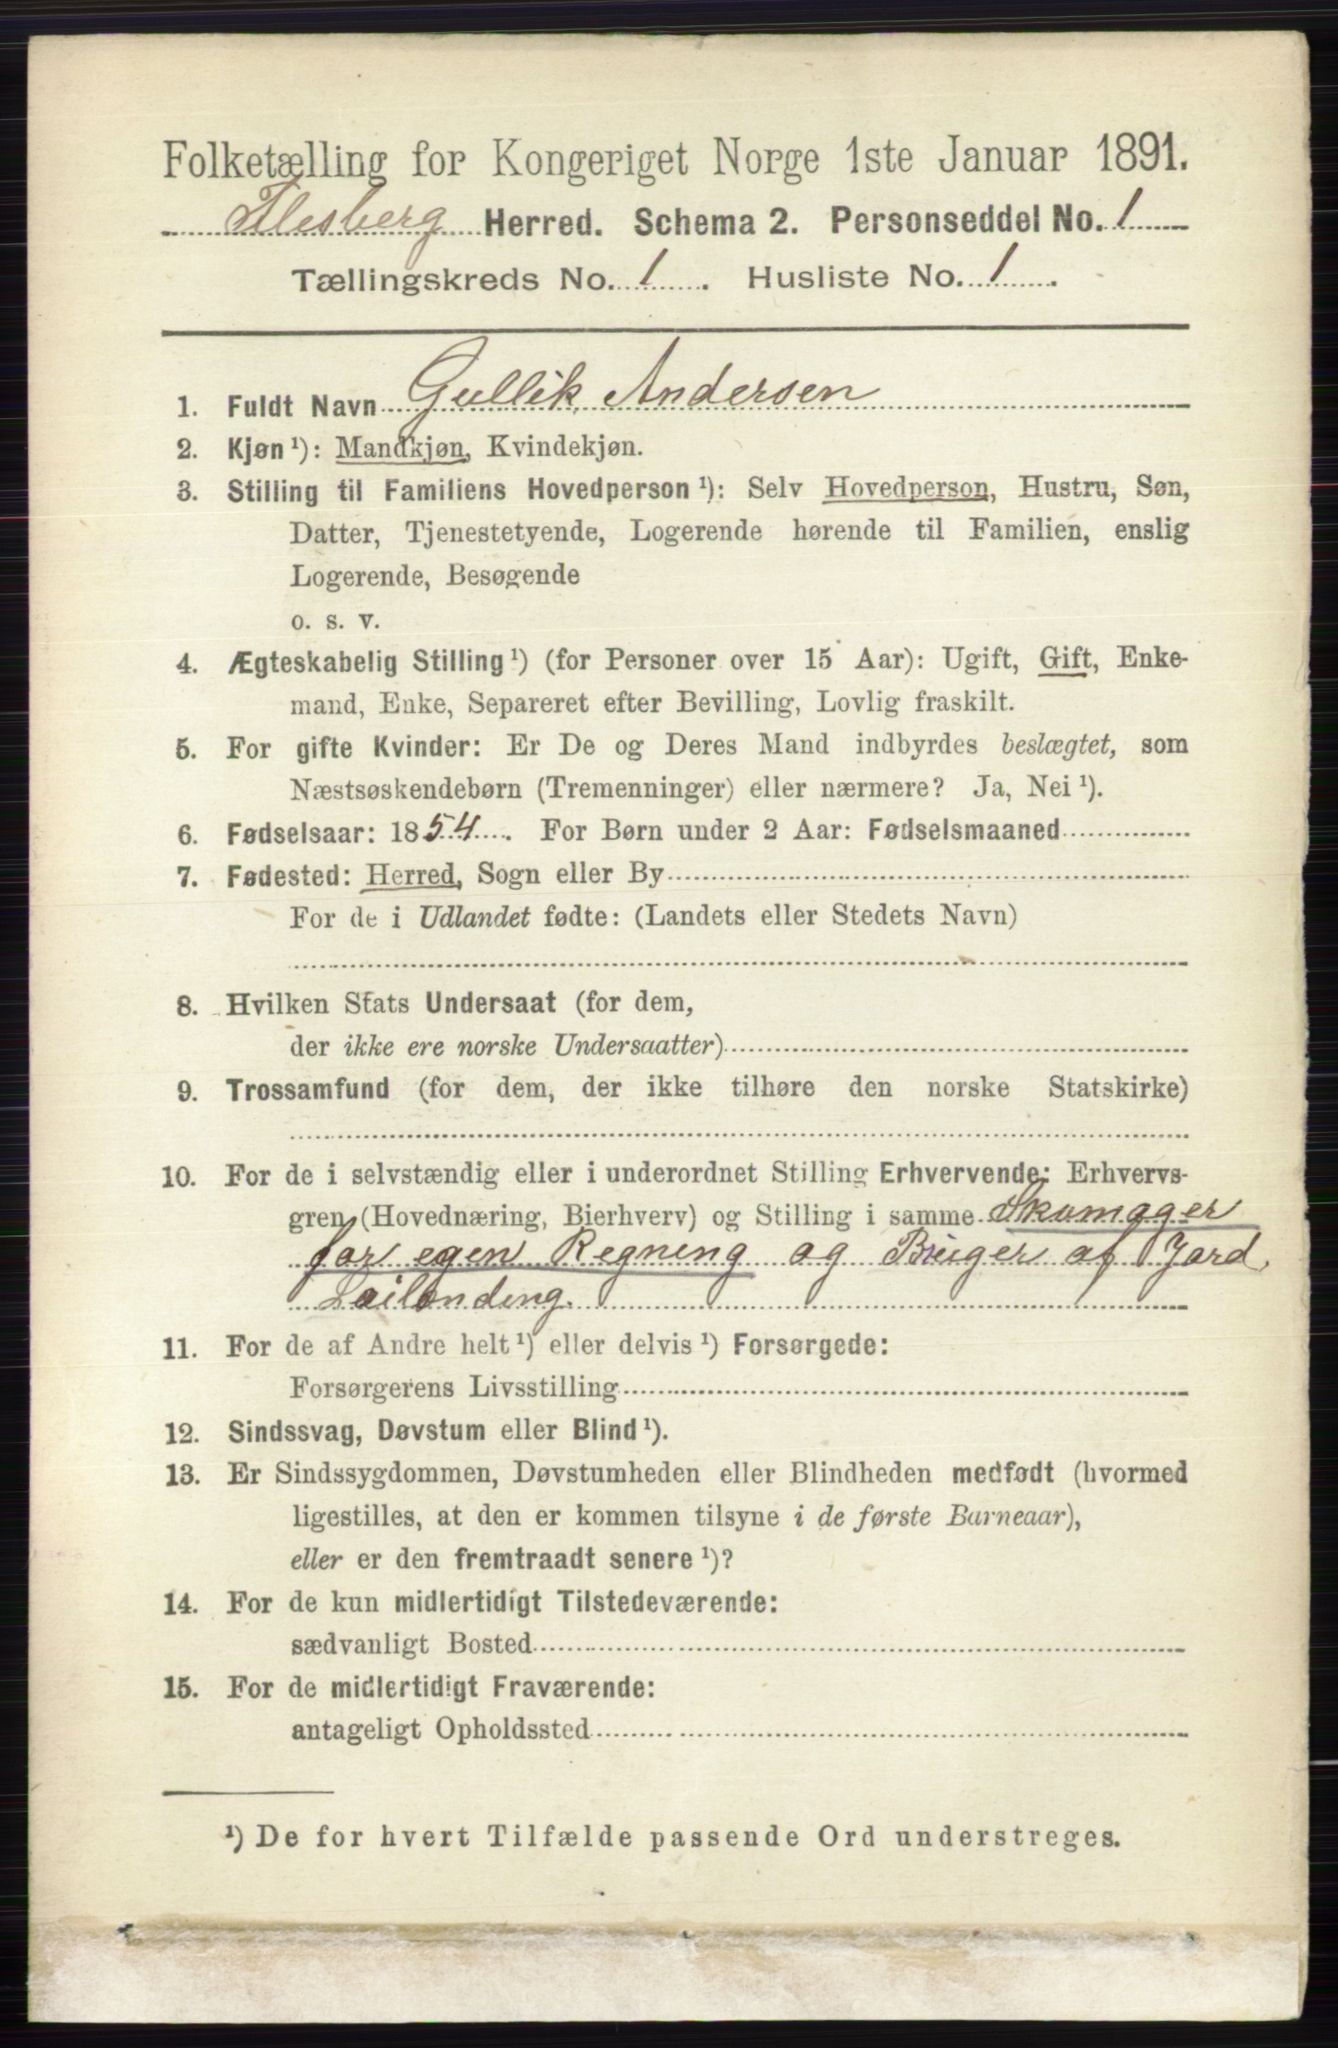 Folketælling for Kongeriget Norge 1ste Januar 1891.
Flesberg Herred. Schema 2. Personseddel No. 1
Tællingskreds No. 1. Husliste No. 1.
1. Fuldt Navn Gullik Andersen
2. Kjøn ¹): Mandkjøn, Kvindekjøn.
3. Stilling til Familiens Hovedperson ¹): Selv Hovedperson, Hustru, Søn,
Datter, Tjenestetyende, Logerende hørende til Familien, enslig
Logerende, Besøgende
o. s. v.
4. Ægteskabelig Stilling ¹) (for Personer over 15 Aar): Ugift, Gift, Enke-
mand, Enke, Separeret efter Bevilling, Lovlig fraskilt.
5. For gifte Kvinder: Er De og Deres Mand indbyrdes beslægtet, som
Næstsøskendebørn (Tremenninger) eller nærmere? Ja, Nei ¹).
6. Fødselsaar: 1854. For Børn under 2 Aar: Fødselsmaaned
7. Fødested: Herred, Sogn eller By
For de i Udlandet fødte: (Landets eller Stedets Navn)
8. Hvilken Stats Undersaat (for dem,
der ikke ere norske Undersaatter)
9. Trossamfund (for dem, der ikke tilhøre den norske Statskirke)
10. For de i selvstændig eller i underordnet Stilling Erhvervende: Erhvervs-
gren (Hovednæring, Bierhverv) og Stilling i samme Skomager
for egen Regning og Bruger af Jord,
Leilending.
11. For de af Andre helt ¹) eller delvis ¹) Forsørgede:
Forsørgerens Livsstilling
12. Sindssvag, Døvstum eller Blind ¹).
13. Er Sindssygdommen, Døvstumheden eller Blindheden medfødt (hvormed
ligestilles, at den er kommen tilsyne i de første Barneaar),
eller er den fremtraadt senere ¹)?
14. For de kun midlertidigt Tilstedeværende:
sædvanligt Bosted
15. For de midlertidigt Fraværende:
antageligt Opholdssted
¹) De for hvert Tilfælde passende Ord understreges.